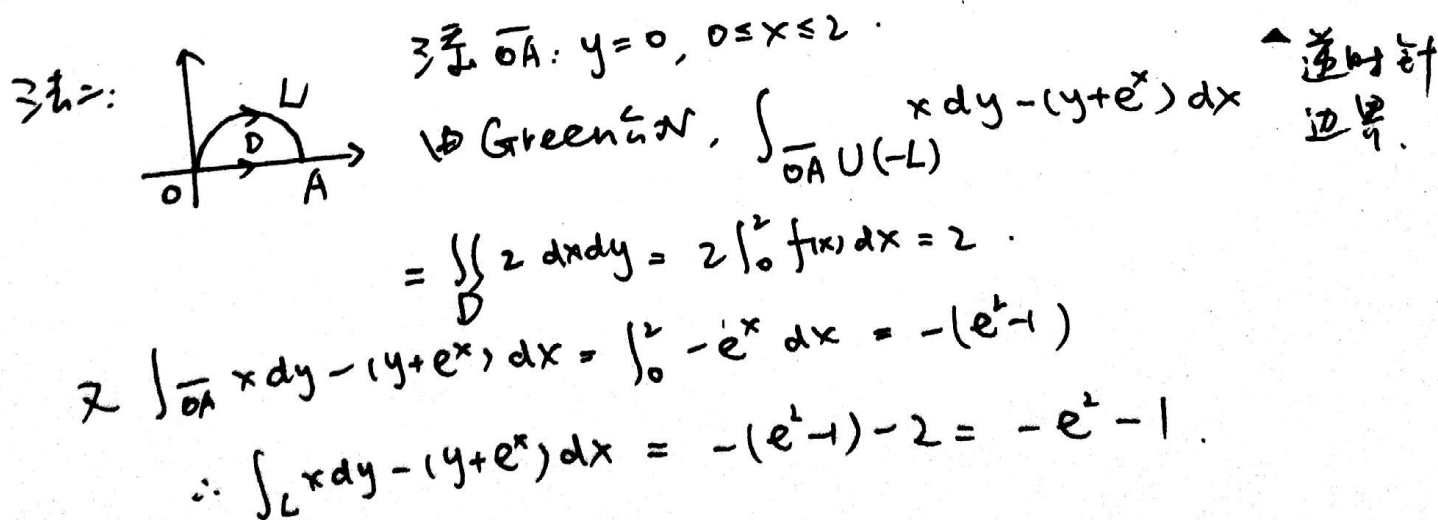 法二: 添 OA̅: y=0, 0≤x≤2.
由 Green公式, ∫_{OA̅∪(-L)} xdy-(y+e^x)dx
逆时针
边界.
L
D
O A
= ∬_D 2 dxdy = 2∫_0^2 f(x)dx = 2.
又 ∫_{OA̅} xdy-(y+e^x)dx = ∫_0^2 -e^x dx = -(e^2-1)
∴ ∫_L xdy-(y+e^x)dx = -(e^2-1)-2 = -e^2-1.